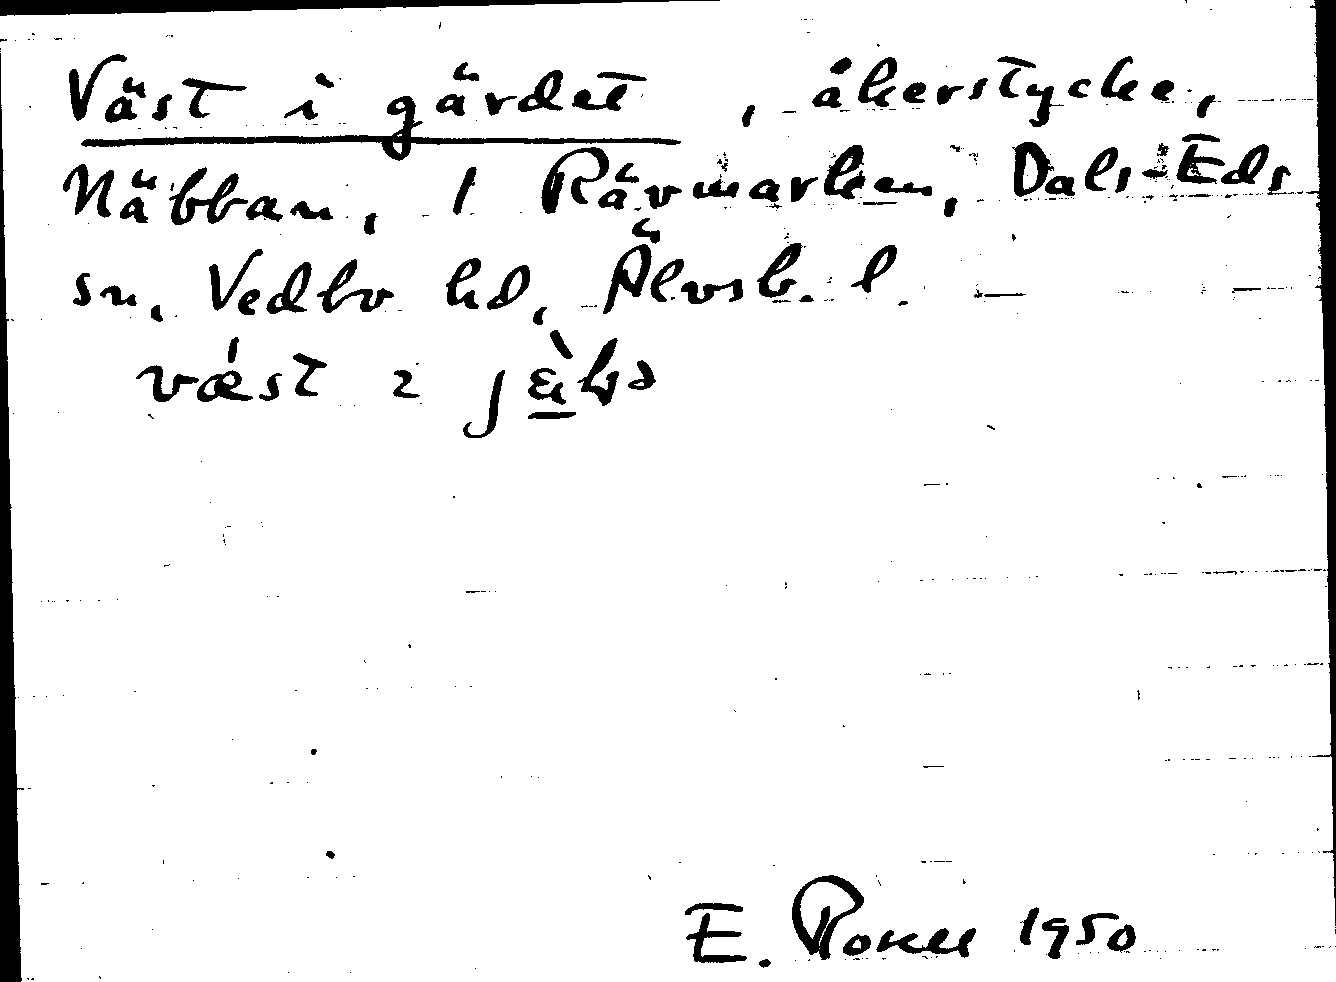 Väst i gärdet, åkerstycke,
Näbban, 1 Rävmarken, Dals-Eds
sn, Vedbo hd, Älvsb. l.
vǽst ɩ
E. Rosell 1950